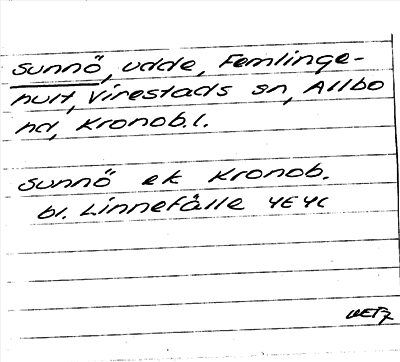 Sunnö, udde, Femlinge-
hult, Virestads sn, Allbo
hd, Kronob.l.
Sunnö ek Kronob.
bl. Linnefälle 4E4c